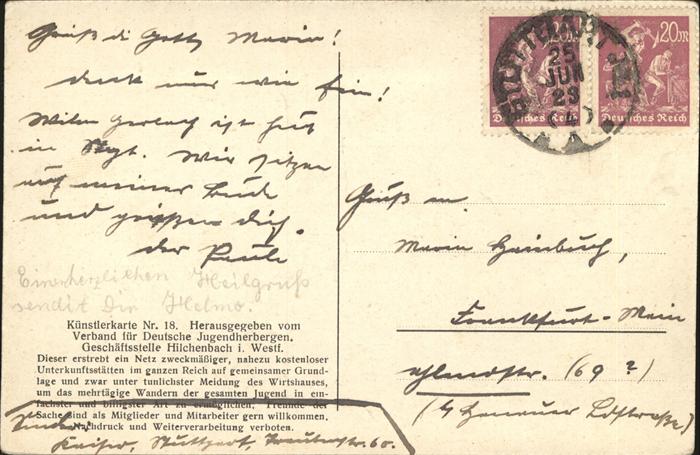 Grüß di Gott, Maria!
denk nur wie fein!
ist hier
in Stgt. Wir sitzen
auf meiner Bude
und grüßen dich.
der Paule
Einen herzlichen Heilgruß
sendit Dir Helmo.
Künstlerkarte Nr. 18. Herausgegeben vom
Verband für Deutsche Jugendherbergen.
Geschäftsstelle Hilchenbach i. Westf.
Dieser erstrebt ein Netz zweckmäßiger, nahezu kostenloser
Unterkunftsstätten im ganzen Reich auf gemeinsamer Grund-
lage und zwar unter tunlichster Meidung des Wirtshauses,
um das mehrtägige Wandern der gesamten Jugend in ein-
fachster und billigster Art zu ermöglichen. Freunde der
Sache sind als Mitglieder und Mitarbeiter gern willkommen.
Nachdruck und Weiterverarbeitung verboten.
Kaiser, Stuttgart, 60.
20m 20m
Deutsches Reich Deutsches Reich
STUTTGART
25
JUN
23
Maria
Frankfurt-Main
str. (69?)
(b/ Hanauer Ldstraße)